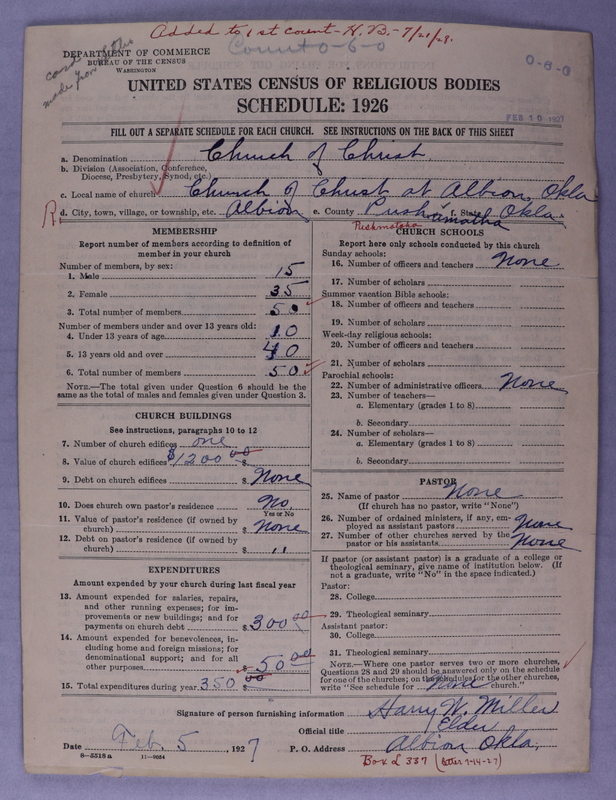 Added to 1st count - H.B. - 7/21/28.
DEPARTMENT OF COMMERCE
BUREAU OF THE CENSUS
WASHINGTON
card made from
Count 0-6-0
0-8-0
UNITED STATES CENSUS OF RELIGIOUS BODIES
SCHEDULE: 1926
FEB 10 1927
FILL OUT A SEPARATE SCHEDULE FOR EACH CHURCH. SEE INSTRUCTIONS ON THE BACK OF THIS SHEET
a. Denomination Church of Christ.
b. Division (Association, Conference, Diocese, Presbytery, Synod, etc.)
c. Local name of church Church of Christ at Albion, Okla
R d. City, town, village, or township, etc. Albion e. County Pushamatha f. State Okla.
Pushmataha
MEMBERSHIP
Report number of members according to definition of
member in your church
Number of members, by sex:
1. Male 15
2. Female 35
3. Total number of members 50
Number of members under and over 13 years old:
4. Under 13 years of age 10
5. 13 years old and over 40
6. Total number of members 50
NOTE.—The total given under Question 6 should be the
same as the total of males and females given under Question 3.
CHURCH BUILDINGS
See instructions, paragraphs 10 to 12
7. Number of church edifices one
8. Value of church edifices $1200 00 $
9. Debt on church edifices $ None
10. Does church own pastor's residence No.
Yes or No
11. Value of pastor's residence (if owned by
church) $ None
12. Debt on pastor's residence (if owned by
church) $ "
EXPENDITURES
Amount expended by your church during last fiscal year
13. Amount expended for salaries, repairs,
and other running expenses; for im-
provements or new buildings; and for
payments on church debt $ 300 00
14. Amount expended for benevolences, in-
cluding home and foreign missions; for
denominational support; and for all
other purposes $ 50 00
15. Total expenditures during year 350 $ 00
CHURCH SCHOOLS
Report here only schools conducted by this church
Sunday schools:
16. Number of officers and teachers None
17. Number of scholars
Summer vacation Bible schools:
18. Number of officers and teachers
19. Number of scholars
Week-day religious schools:
20. Number of officers and teachers
21. Number of scholars
Parochial schools:
22. Number of administrative officers None
23. Number of teachers—
a. Elementary (grades 1 to 8)
b. Secondary
24. Number of scholars—
a. Elementary (grades 1 to 8)
b. Secondary
PASTOR
25. Name of pastor None
(If church has no pastor, write "None")
26. Number of ordained ministers, if any, em-
ployed as assistant pastors None
27. Number of other churches served by the
pastor or his assistants None
If pastor (or assistant pastor) is a graduate of a college or
theological seminary, give name of institution below. (If
not a graduate, write "No" in the space indicated.)
Pastor:
28. College
29. Theological seminary
Assistant pastor:
30. College
31. Theological seminary
NOTE.—Where one pastor serves two or more churches,
Questions 28 and 29 should be answered only on the schedule
for one of the churches; on the schedules for the other churches,
write "See schedule for None church."
Signature of person furnishing information Harry W. Miller
Official title Elder
Date Feb. 5, 1927 P. O. Address Albion Okla.
8-5518a 11-9054
Box L 337 (letter 7-14-27)